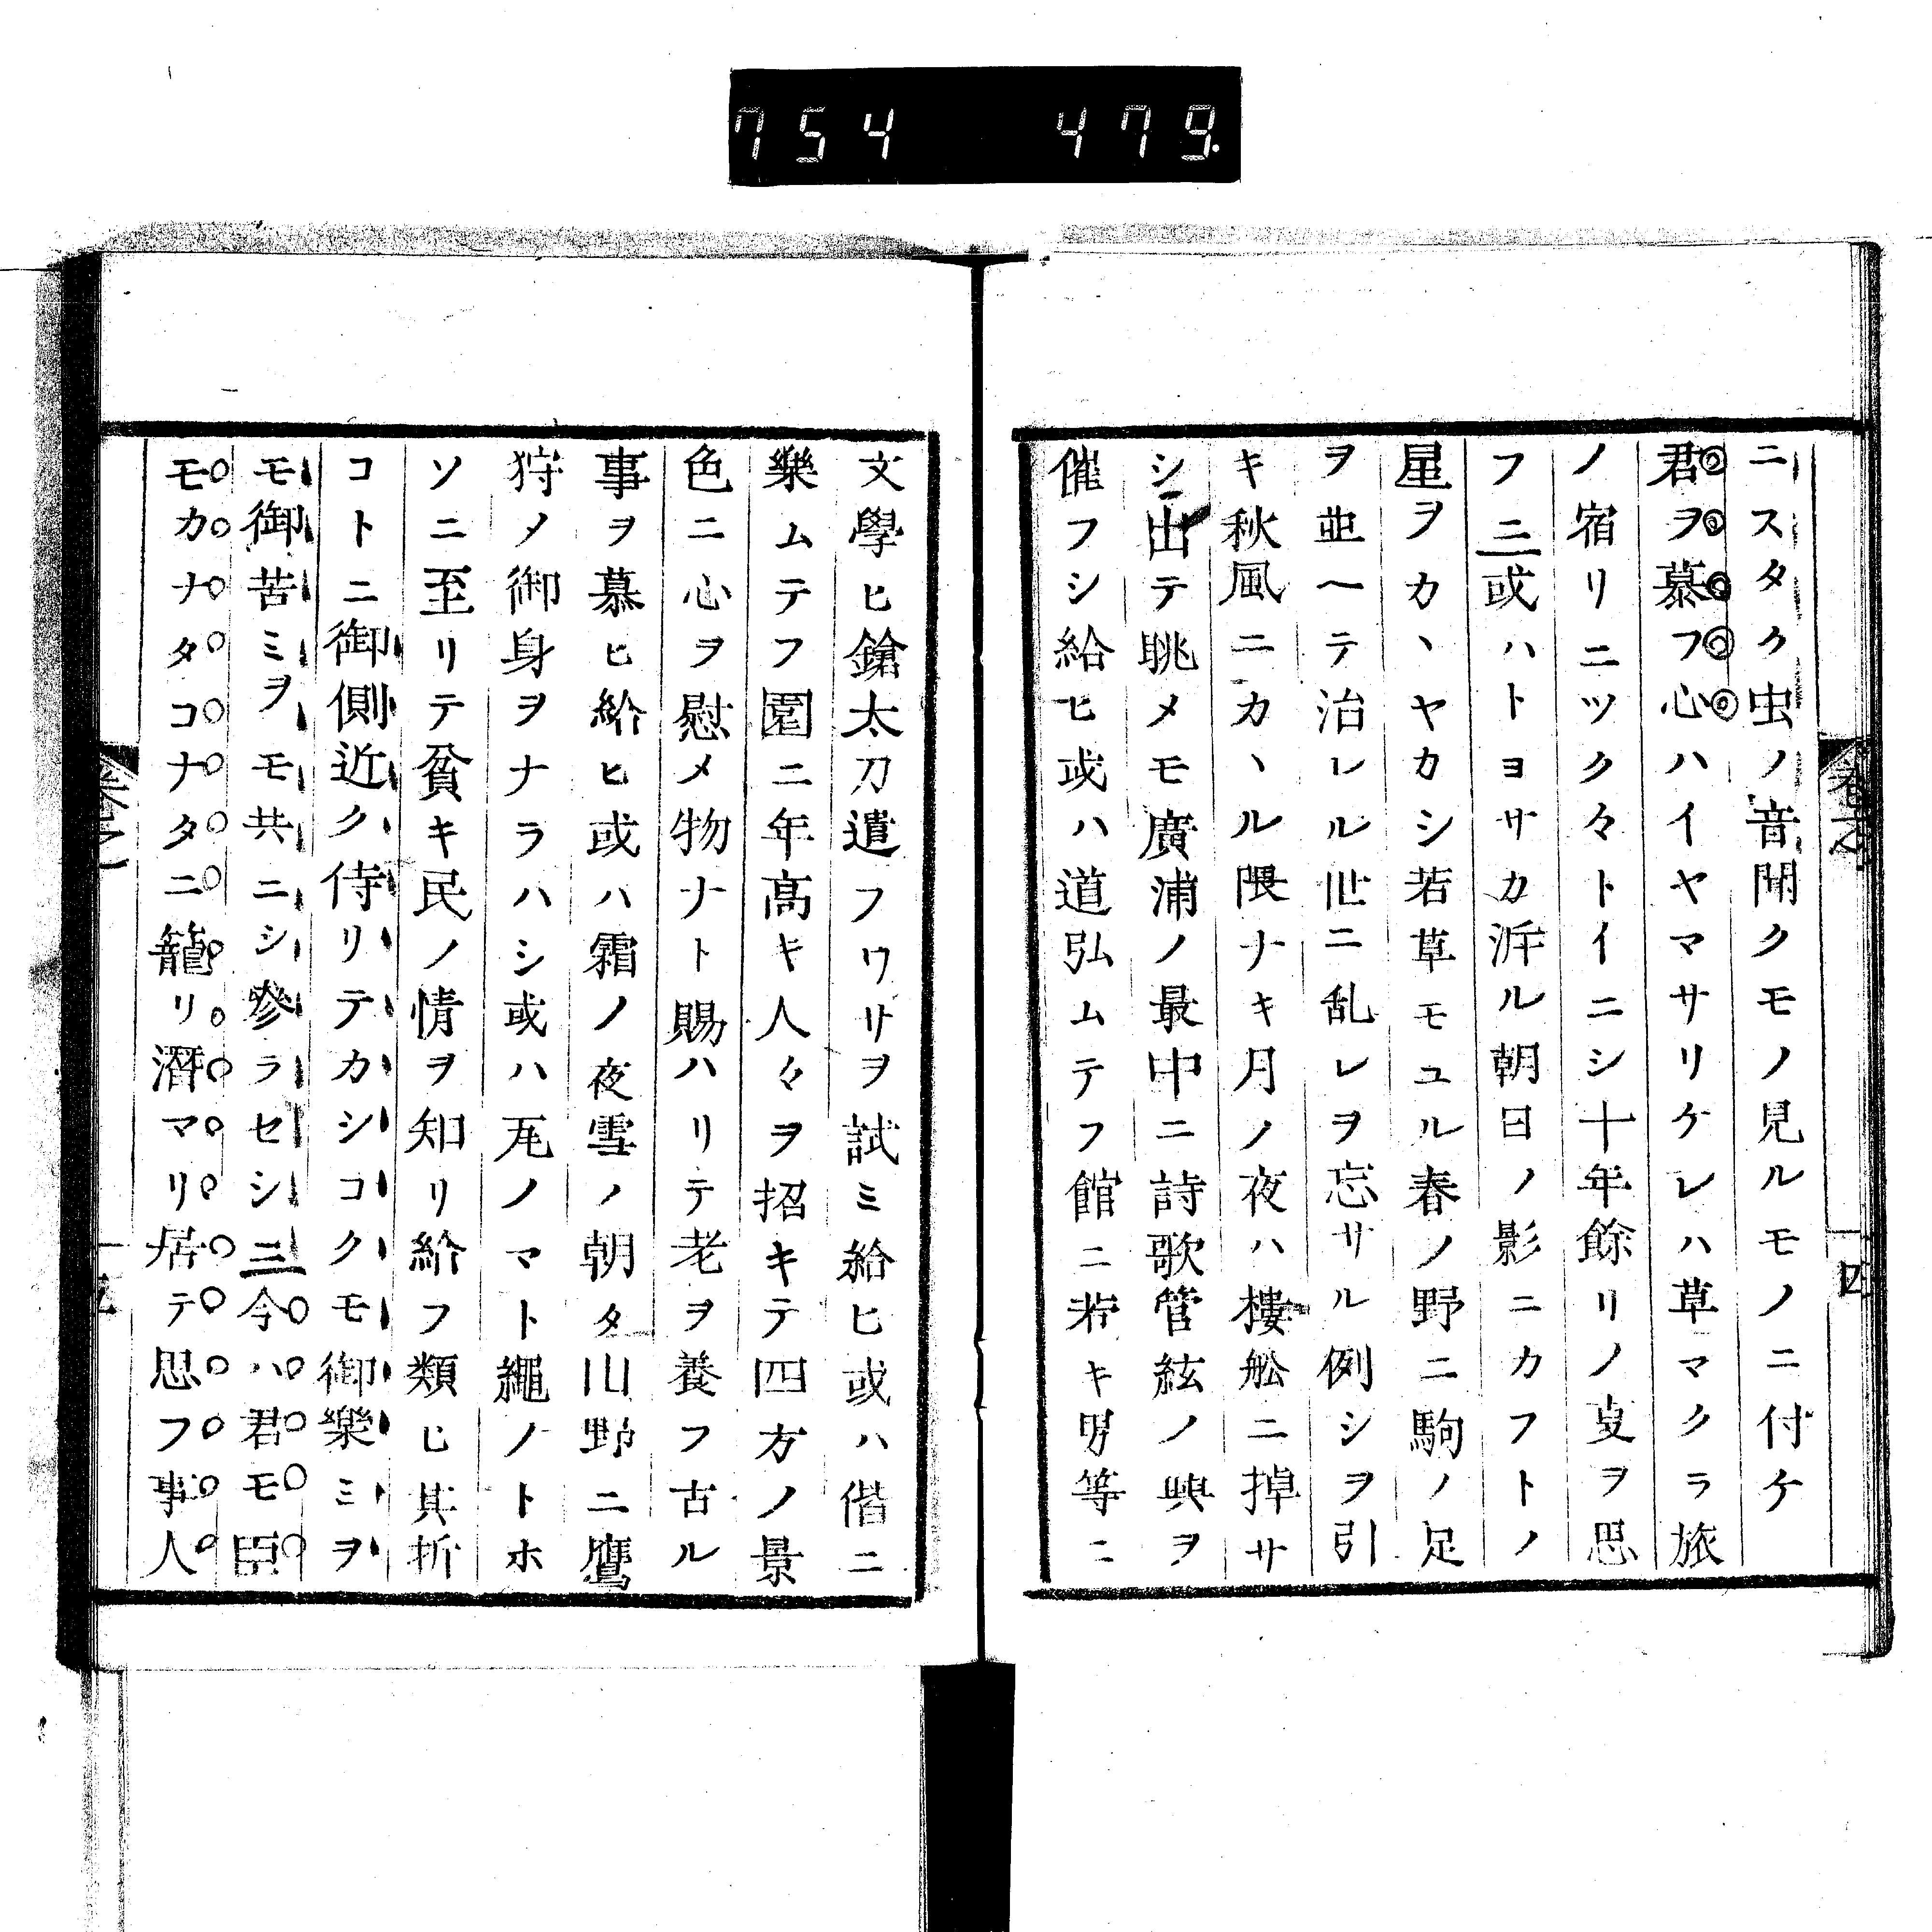 754 479.
ニスタク虫ノ音聞クモノ見ルモノニ付ケ
君ヲ慕フ心ハイヤマサリケレハ草マクラ旅
ノ宿リニツク々々トイニシ十年餘リノ㕝ヲ思
フニ或ハトヨサカ浜ル朝日ノ影ニカフトノ
星ヲカヽヤカシ若草モユル春ノ野ニ駒ノ足
ヲ並ヘテ治レル世ニ乱レヲ忘サル例シヲ引
キ秋風ニカヽル隈ナキ月ノ夜ハ樓舩ニ掉サ
シ出テ眺メモ廣浦ノ最中ニ詩歌管絃ノ興ヲ
催フシ給ヒ或ハ道弘ムテフ館ニ若キ男等ニ
文學ヒ鎗太刀遣フワサヲ試ミ給ヒ或ハ偕ニ
樂ムテフ園ニ年高キ人々ヲ招キテ四方ノ景
色ニ心ヲ慰メ物ナト賜ハリテ老ヲ養フ古ル
事ヲ慕ヒ給ヒ或ハ霜ノ夜雪ノ朝タ山野ニ鷹
狩ノ御身ヲナラハシ或ハ瓦ノマト繩ノトホ
ソニ至リテ貧キ民ノ情ヲ知リ給フ類ヒ其折
コトニ御側近ク侍リテカシコクモ御樂ミヲ
モ御苦ミヲモ共ニシ參ラセシニ今ハ君モ臣
モカナタコナタニ籠リ潛マリ居テ思フ事人